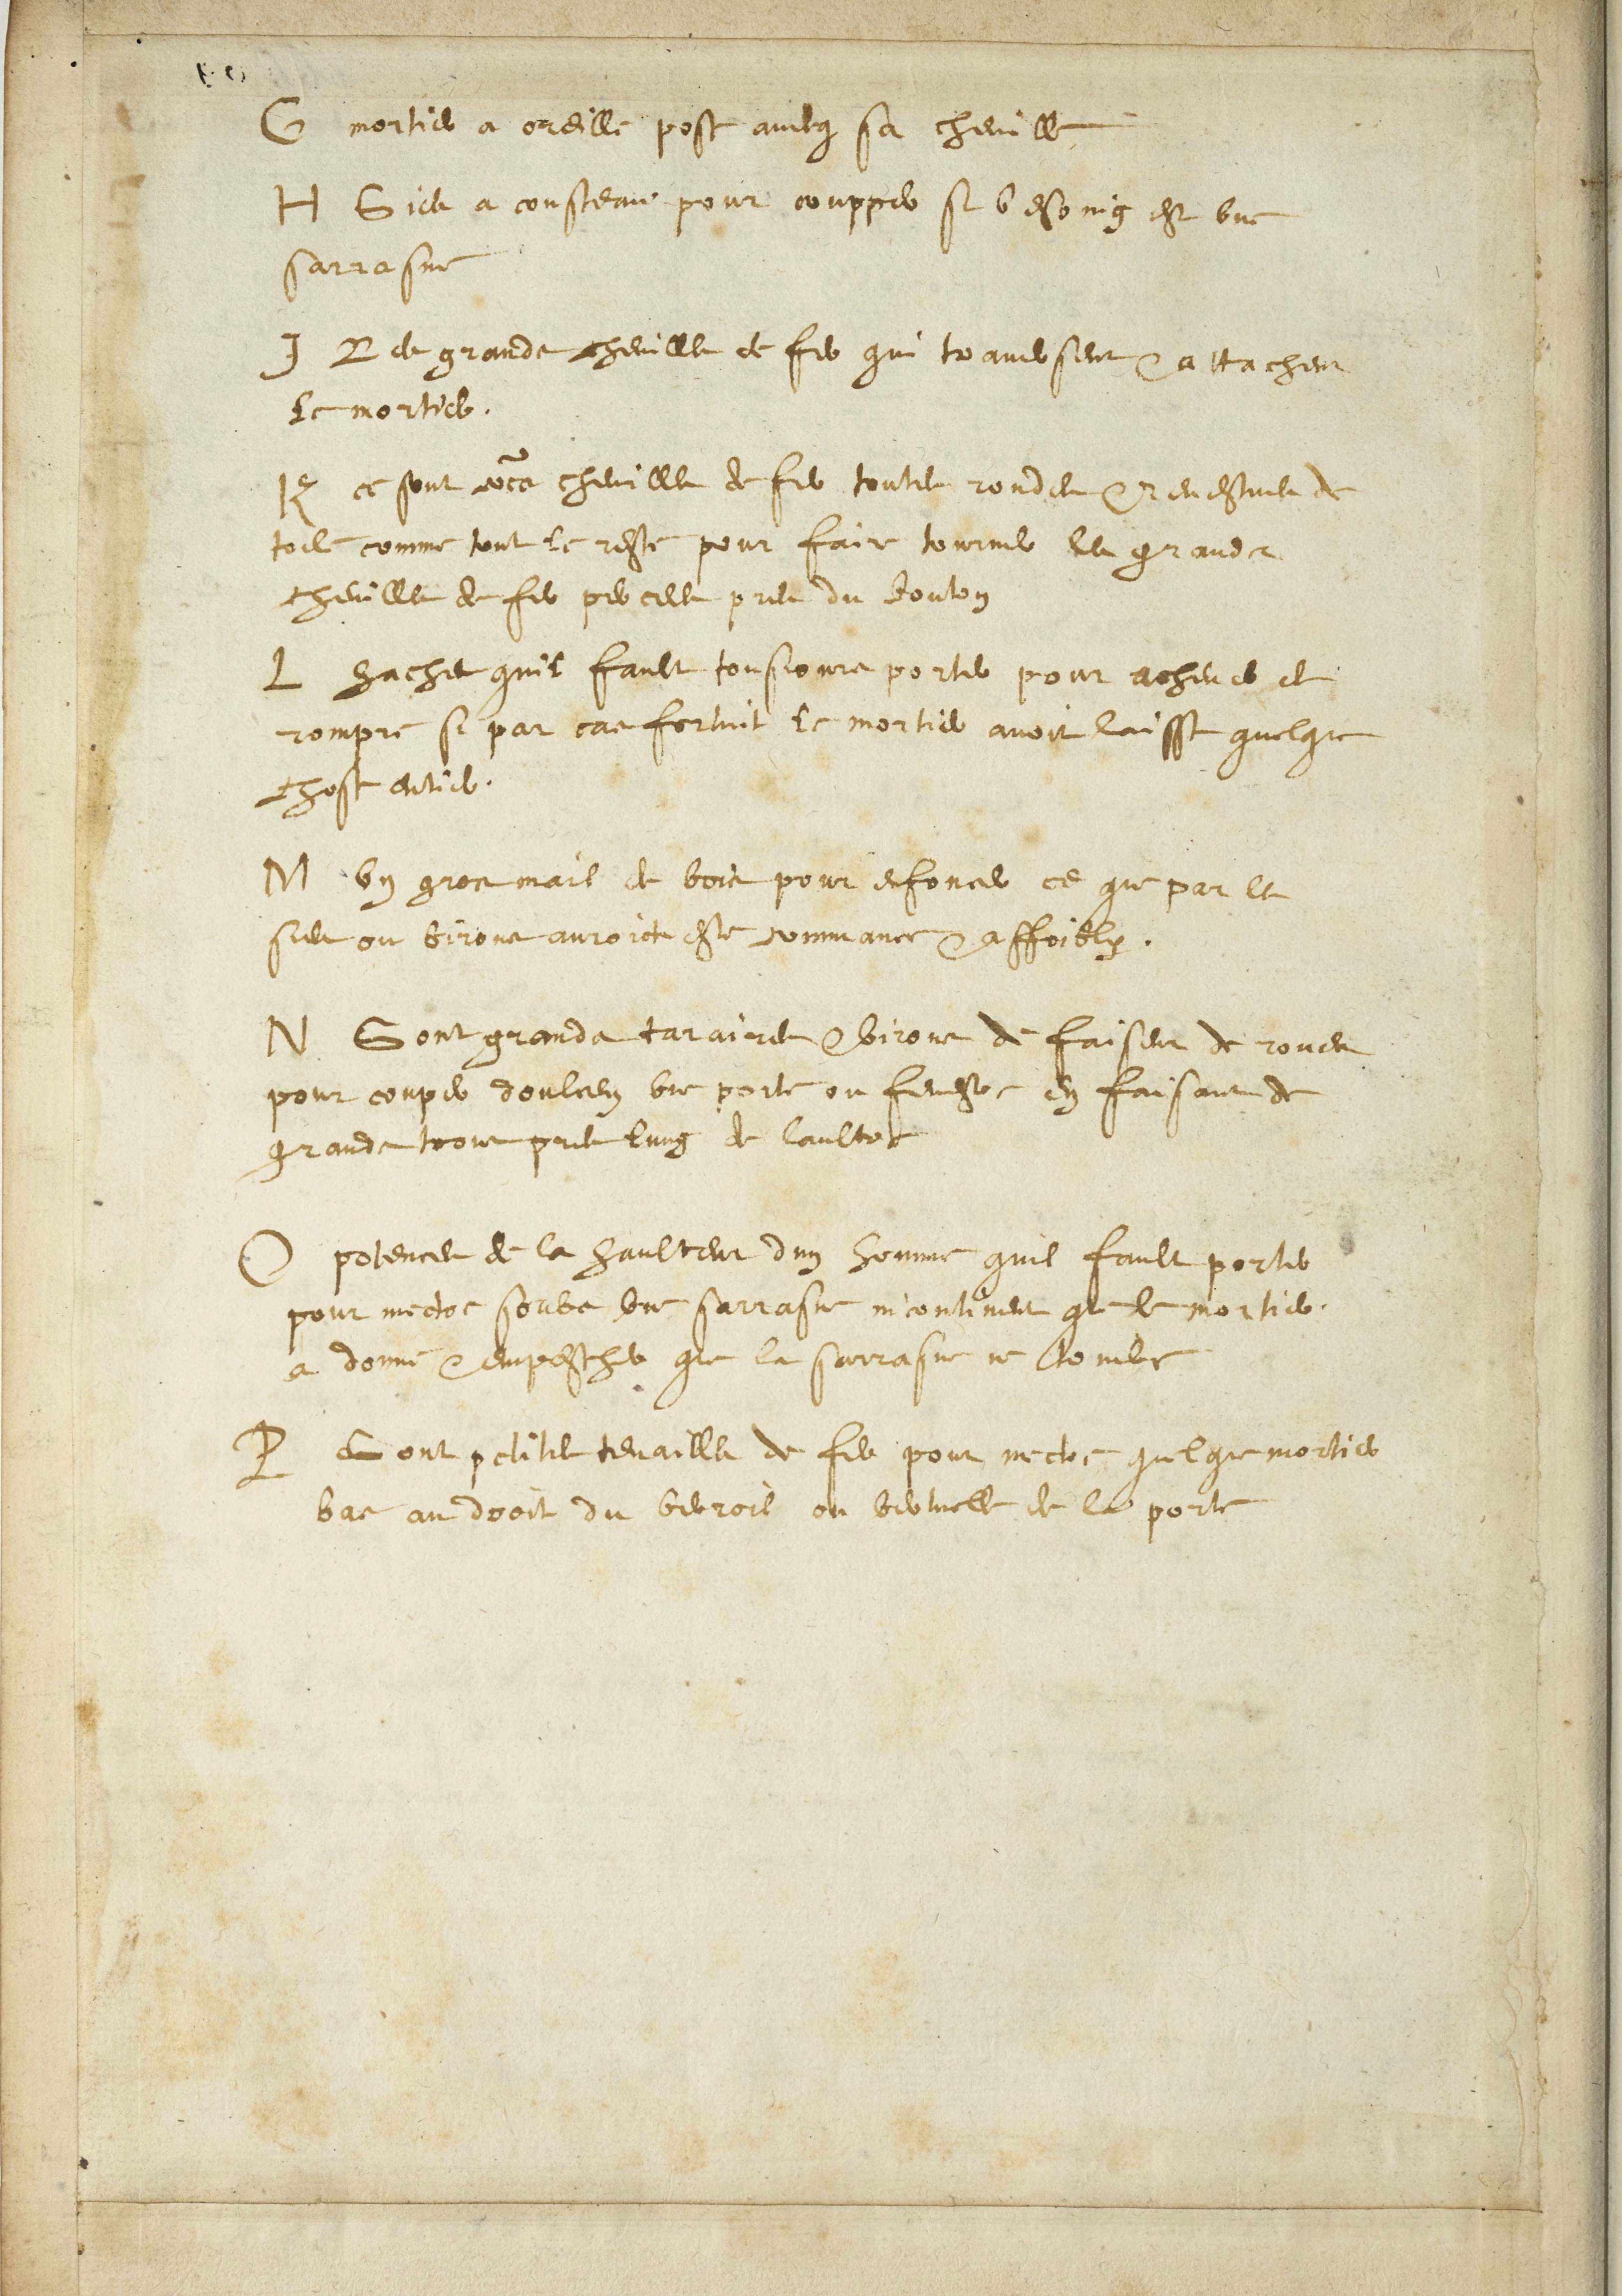 G mortier a oreille pose avecq sa cheville
H Sies a cousteau pour coupper si besoing est une
sarrasine
J Les grandes chevilles de fer qui traversent & attachent
le mortier.
K ce sont chevilles de fer toutes rondes & revestues de
toile comme tout le reste pour faire tourner les grandes
chevilles de fer percees pres du bouton
L haches quil fault tousiours porter pour achever et
rompre si par cas fortuit le mortier avoit laisse quelque
chose entier.
M ung gros mail de bois pour enfoncer ce que par les
sies ou virons auroict este commance & affoibly.
N Sont grandz taraires & virons de faiseur de roues
pour couper doulcem une porte ou fenestre en faisant de
grandz trous pres lung de laultre
O potences de la haulteur dun homme quil fault porter
pour mectre soubz une sarrasine incontinent que le mortier.
a donne & empescher que la sarrasine ne tombe
P Sont petites tenailles de fer pour mectre quelque mortier
bas au droit du verroil ou vertuelle de la porte